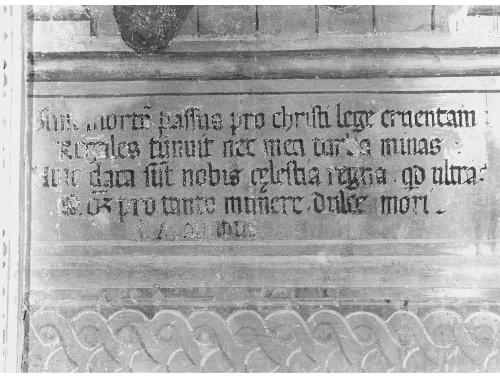 Sum mortē passus pro christi lege cruentam :
Regales timuit nec mea barba minas :
Huic data sūt nobis cęlestia regna . qd ultra :
Est pro tanto munere . dulce mori .